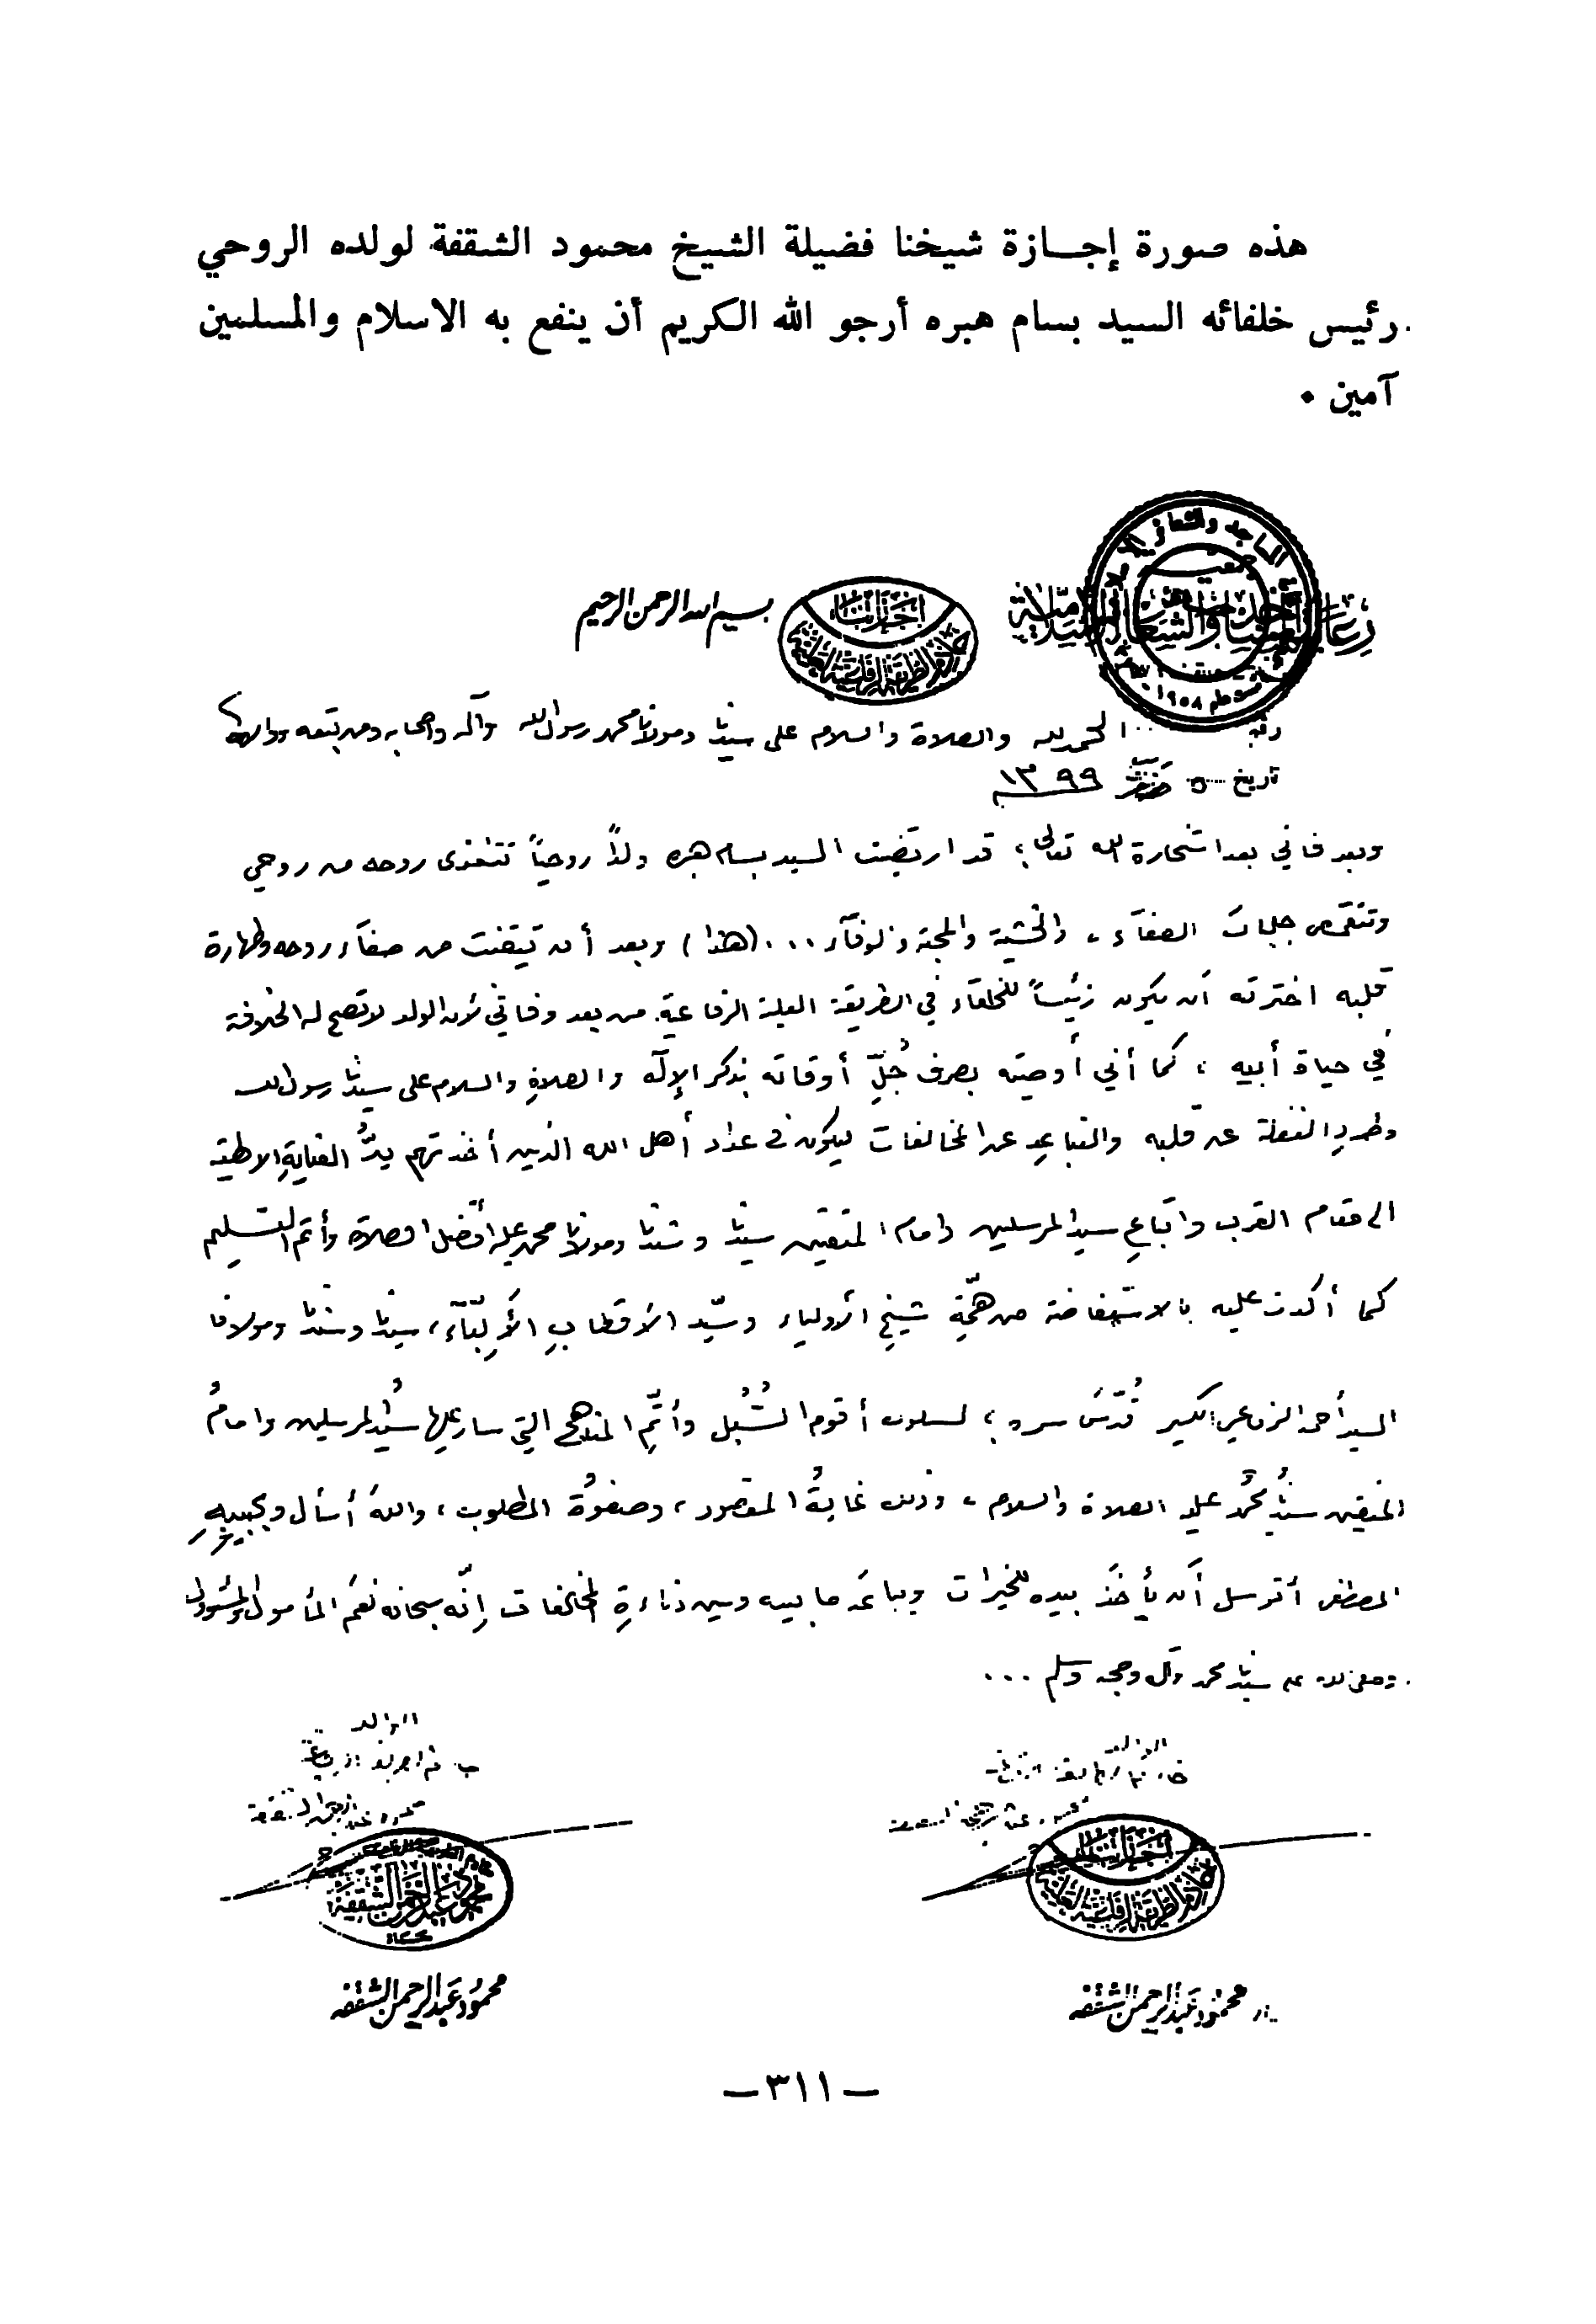 هذه صورة إجازة شيخنا فضيلة الشيخ محمود الشقفة لولده الروحي
رئيس خلفائه السيد بسام هبره أرجو الله الكريم أن ينفع به الاسلام والمسلمين
آمين ٠
بسم الله الرحمن الرحيم
الحمد لله والصلاة والسلام على سيدنا ومولانا محمد رسول الله وآله وأصحابه ومن تبعه ووالاه
تاريخ ٥ رجب ١٣٩٩
وبعد فاني بعد استخارة الله تعالى ، قد ارتضيت السيد بسام هبره ولداً روحياً تتغذى روحه من روحي
وتتقمص جلباب الصفآء ، والخشية والمحبة والوفآء ... (هذا) وبعد أن تيقنت من صفآء روحه وطهارة
قلبه اخترته أن يكون رئيساً للخلفآء في الطريقة العلية الرفاعية من بعد وفاتي لأن الولد لا تصح له الخلافة
في حياة أبيه ، كما أني أوصيته بصرف جُلِّ أوقاته بذكر الإلٓه والصلاةِ والسلام على سيدنا رسول الله
وطردِ الغفلة عن قلبه والتباعدِ عن المخالفات ليكون في عداد أهل الله الذين أخذتهم يدُ العنايةِ الالهية
الى مقام القرب واتباعِ سيد المرسلين وامام المتقين سيدنا وسندنا ومولانا محمد عليه أفضل الصلاة وأتم التسليم
كما أكدت عليه بالاستفاضة من همّةِ شيخِ الأولياء وسيّد الأقطابِ الأربّآء ، سيدنا وسندنا ومولانا
السيد أحمد الرفاعي الكبير قُدّسَ سره ، لسلوك أقوم السُّبُل وأتمِّ المناهج التي سار عليها سيُّد المرسلين وامامُ
المتقين سيدُنا محمدٌ عليه الصلاة والسلام ، وذلك غايةُ المقصود ، وصفوُة المطلوب ، واللهَ أسأل وبحبيبهِ
المصطفى أتوسل أن يأخذَ بيده للخيرات ويباعدَ ما بينه وبين دناءةِ المخالفات إنّه سبحانه نعم المأمول والمسؤول
وصلى الله على سيدنا محمد وآله وصحبه وسلم ...
الوالد
محمود عبد الرحمن الشقفه
محمود عبد الرحمن الشقفه
ـ ٣١١ ـ